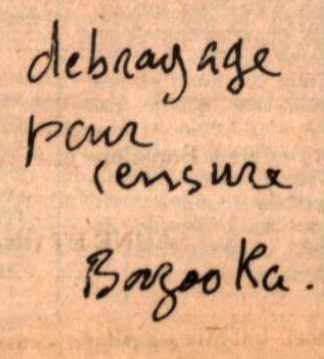 debrayage
pour
censure
Bazooka.